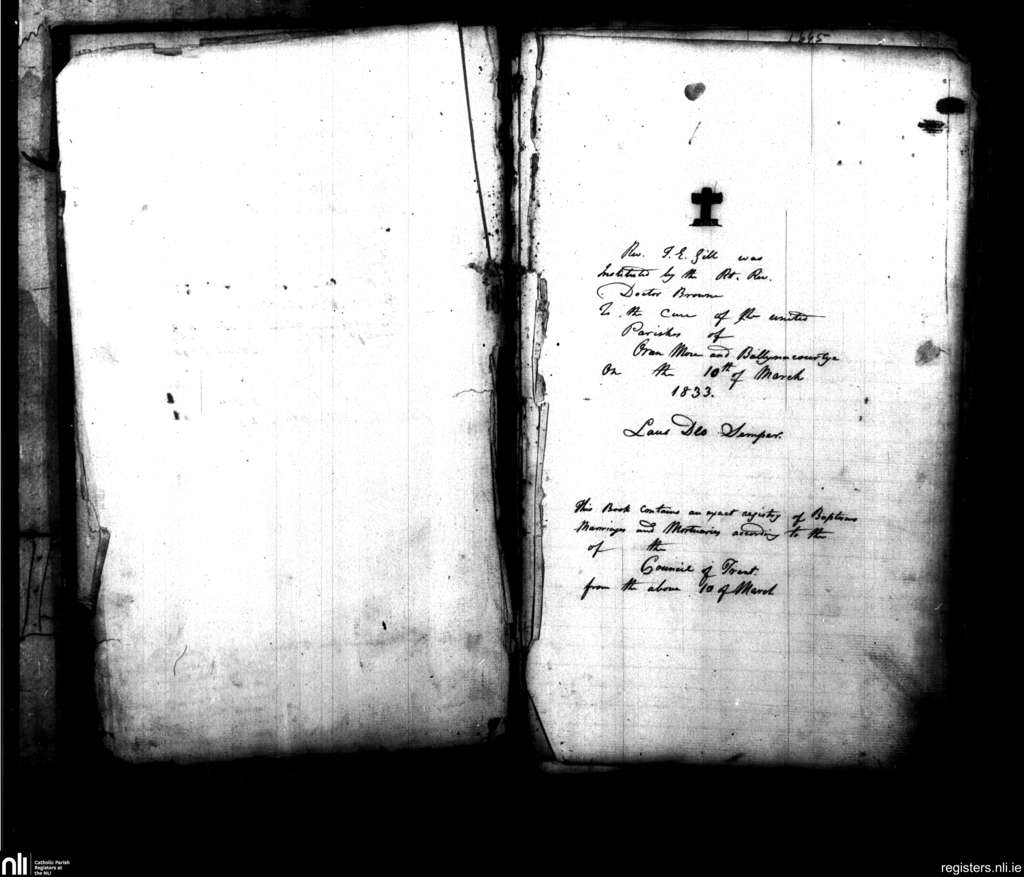 Rev. F. E. Gill was
Instituted by the Rt. Rev.
Doctor Browne
To the Cure of the united
Parishes of
Oran More and Ballynacourty
On the 10th of March
1833.
Laus Deo Semper.
This Book contains an exact registry of Baptisms
Marriages and Mortuaries according to the
of the
Council of Trent.
from the above 10 of March
nli
Catholic Parish
Registers at
the NLI
registers.nli.ie